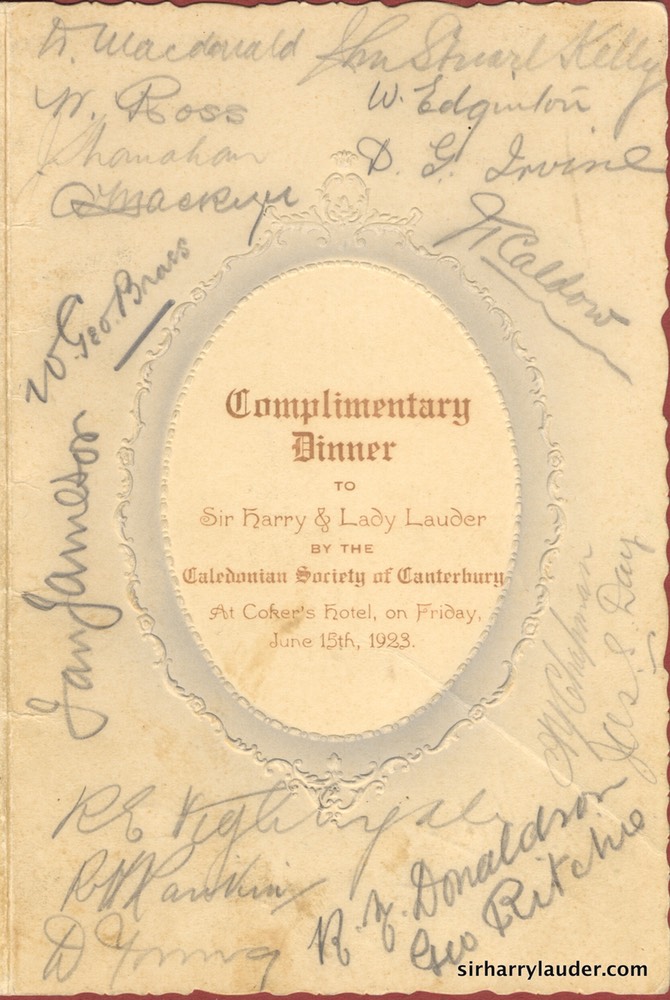 Macdonald
John Stuart Kelly
W. Ross
W. Edginton
Shanahan
D. G. Irvine
Caldow
W. Geo. Brass
Jameson
Complimentary
Dinner
TO
Sir Harry & Lady Lauder
BY THE
Caledonian Society of Canterbury
At Coker's Hotel, on Friday,
June 15th, 1923.
Chapman
Jas. S. Day
R E Nightingale
Rankin
D Young
Donaldson
Geo Ritchie
sirharrylauder.com